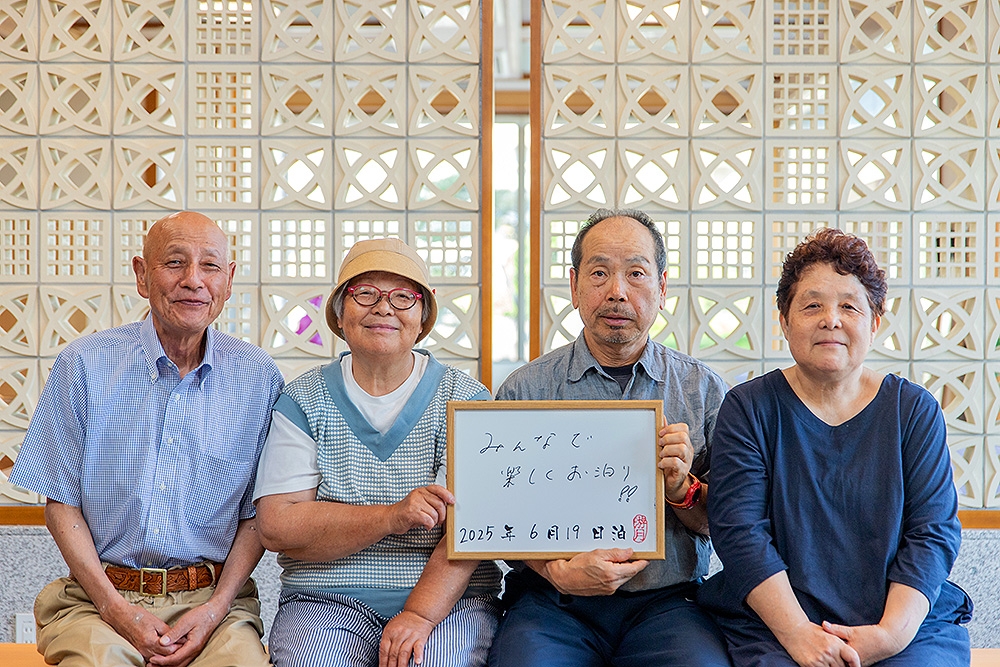 みんなで
楽しくお泊り
!!
2025年 6月19日泊